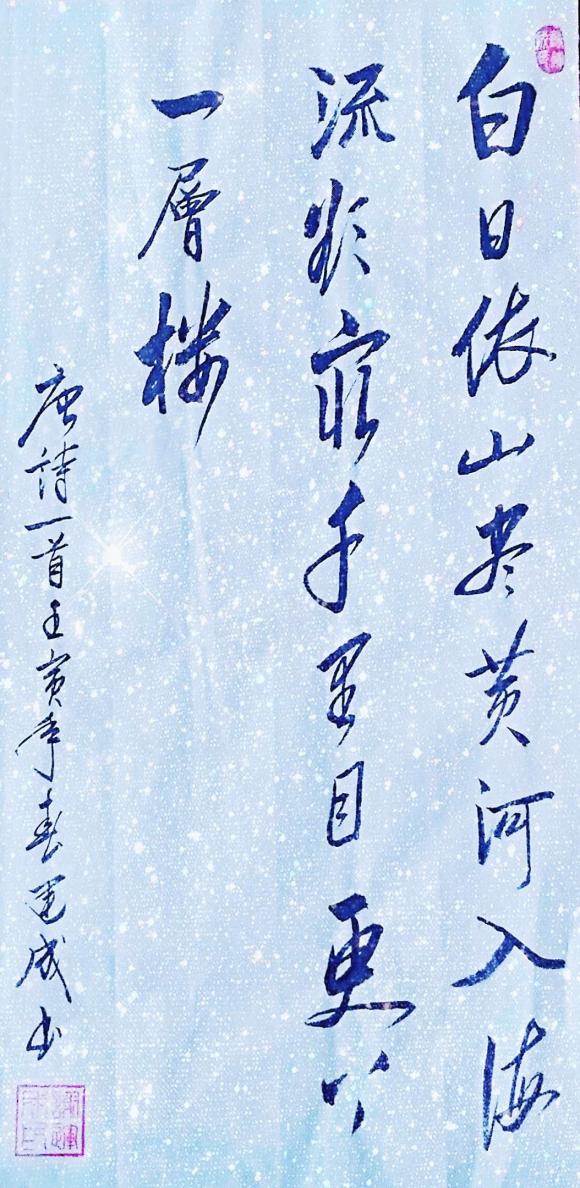 白日依山尽黄河入海
流欲窮千里目更上
一層楼
唐詩一首壬寅年春運成书
謝運成印